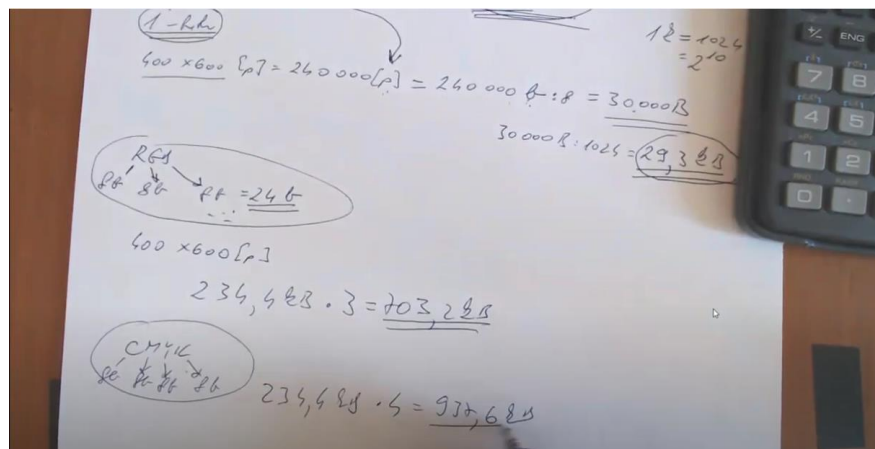 1k = 1024
= 2^10
400 × 600 [p] = 240 000 [p] = 240 000 b : 8 = 30.000B
30 000B : 1024 = 29,3 kB
RGB
8b 8b 8b = 24 b
400 × 600 [p]
234,4 kB · 3 = 703,2 kB
CMYK
8b 8b 8b 8b
234,4 kB · 4 = 937,6 kB
+/- ENG
7 8
4 5
1 2
0 ·